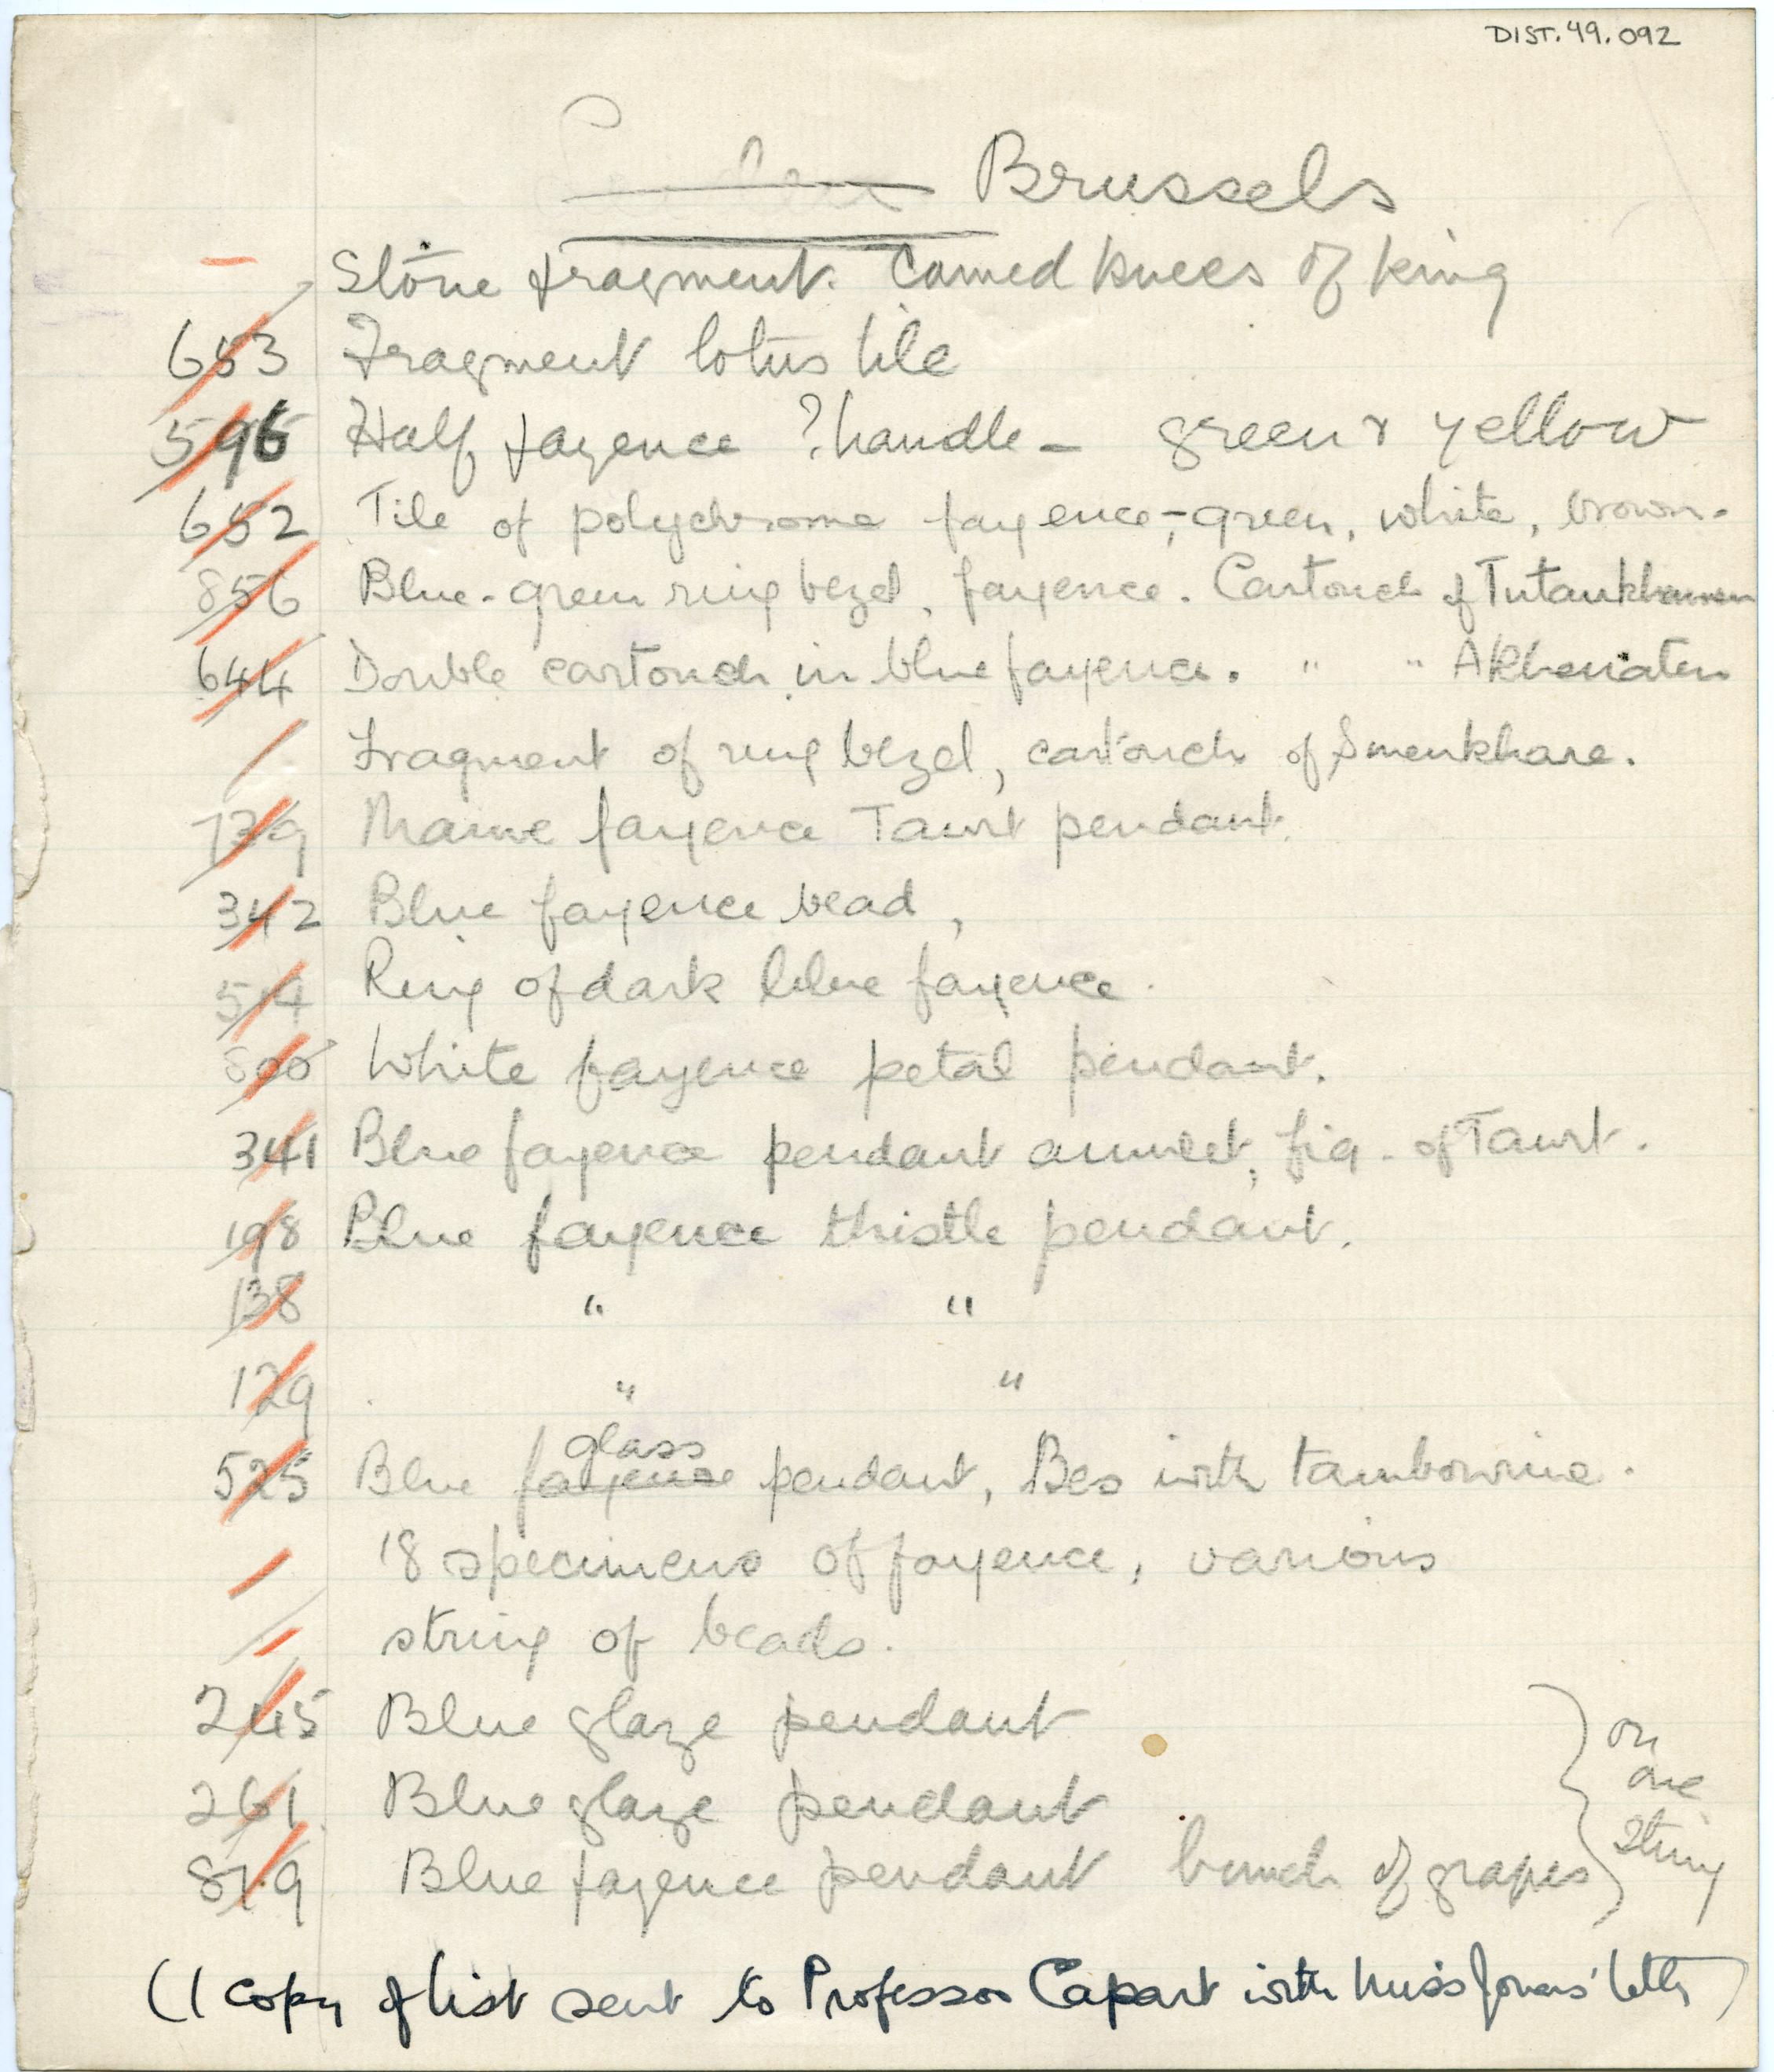 DIST.49.092
Brussels
Stone fragment. Carved knees of king
653 Fragment lotus tile
596 Half fayence ? handle – green & yellow
652 Tile of polychrome fayence,–green, white, brown.
856 Blue-green ring bezel, fayence. Cartouch of Tutankhamen
644 Double cartouch in blue fayence. " " Akhenaten
Fragment of ring bezel, cartouch of Smenkhare.
739 Mauve fayence Taurt pendant.
342 Blue fayence bead,
514 Ring of dark blue fayence.
800 White fayence petal pendant.
341 Blue fayence pendant amulet, fig. of Taurt.
198 Blue fayence thistle pendant.
138 " "
129 " "
glass
525 Blue fayence pendant, Bes with tambourine.
18 specimens of fayence, various
string of beads.
245 Blue glaze pendant
261 Blue glaze pendant
879 Blue fayence pendant bunch of grapes
on
one
string
(1 copy of list sent to Professor Capart with Miss Jonas' letter)